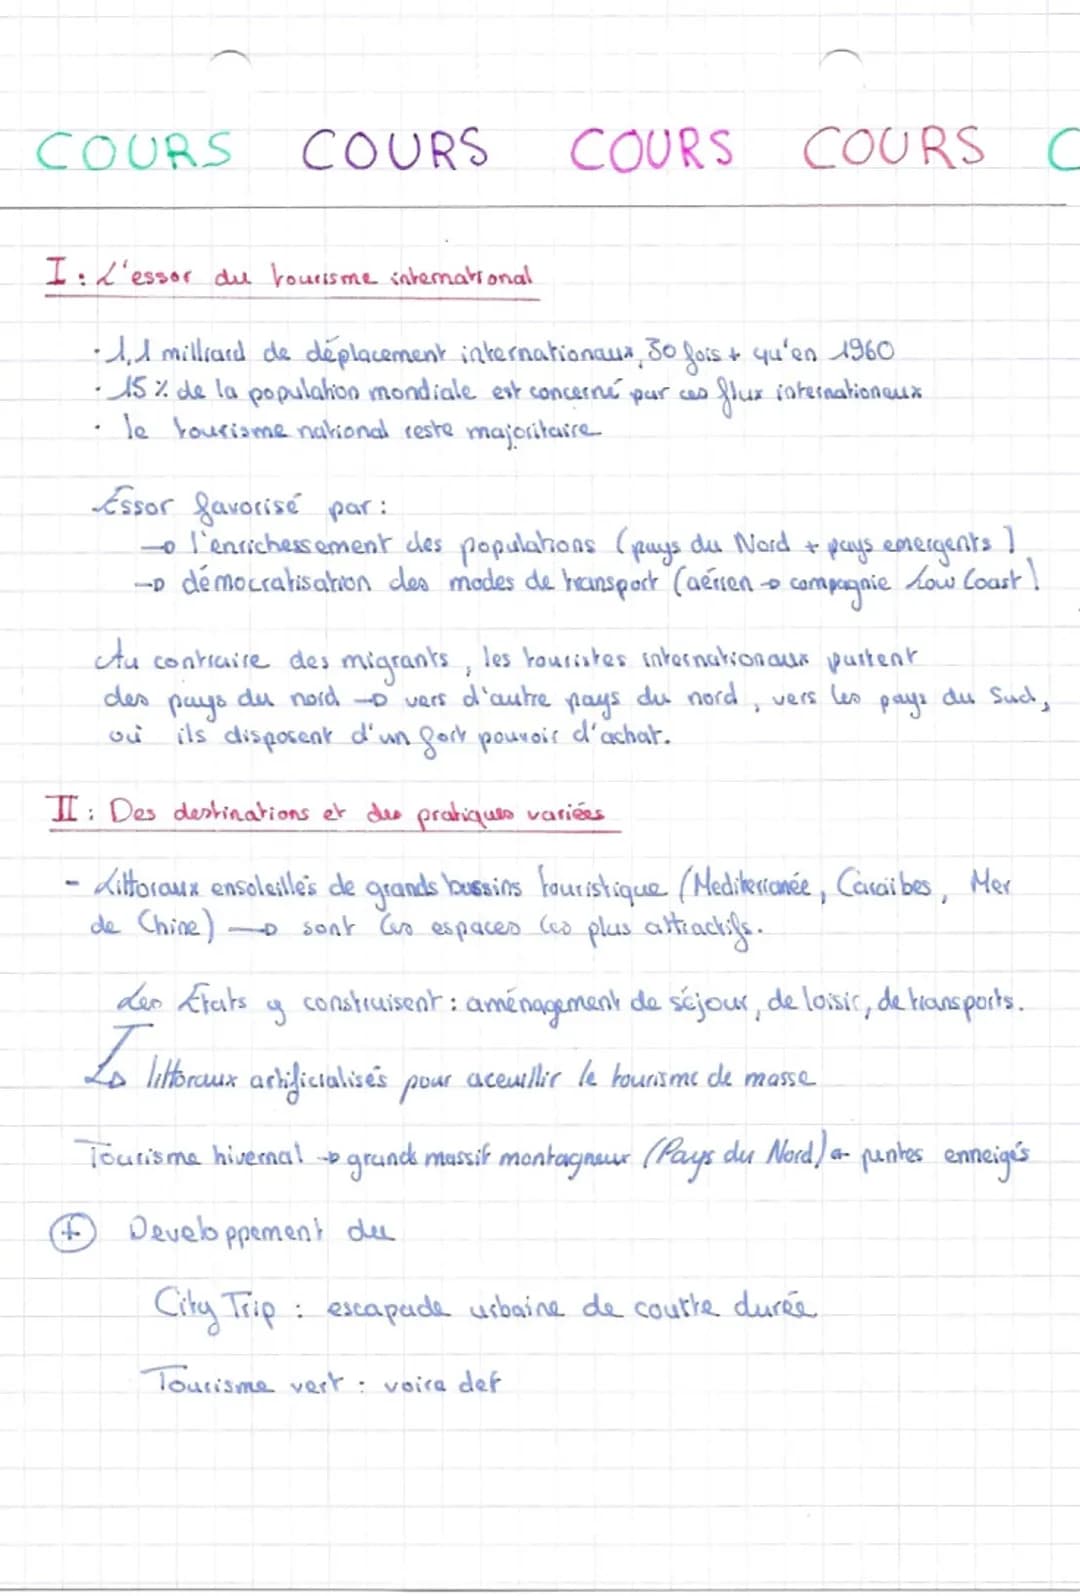 COURS COURS COURS COURS C
I : L'essor du tourisme international
· 1,1 milliard de déplacement internationaux, 30 fois + qu'en 1960
· 15 % de la population mondiale est concerné par ces flux internationaux
· le tourisme national reste majoritaire
Essor favorisé par :
→ l'enrichessement des populations (pays du Nord + pays emergents)
→ démocratisation des modes de transport (aérien → compagnie Low Coast)
Au contraire des migrants, les touristes internationaux partent
des pays du nord → vers d'autre pays du nord, vers les pays du Sud,
où ils disposent d'un fort pouvoir d'achat.
II : Des destinations et des pratiques variées
- Littoraux ensoleillés de grands bassins touristique (Mediterranée, Caraïbes, Mer
de Chine) → sont les espaces les plus attractifs.
Les États y construisent : aménagement de séjour, de loisir, de transports.
↳ littoraux artificialisés pour aceuillir le tourisme de masse
Tourisme hivernal → grands massif montagneux (Pays du Nord) a pentes enneigés
+ Developpement du
City Trip : escapade urbaine de courte durée
Tourisme vert : voira def